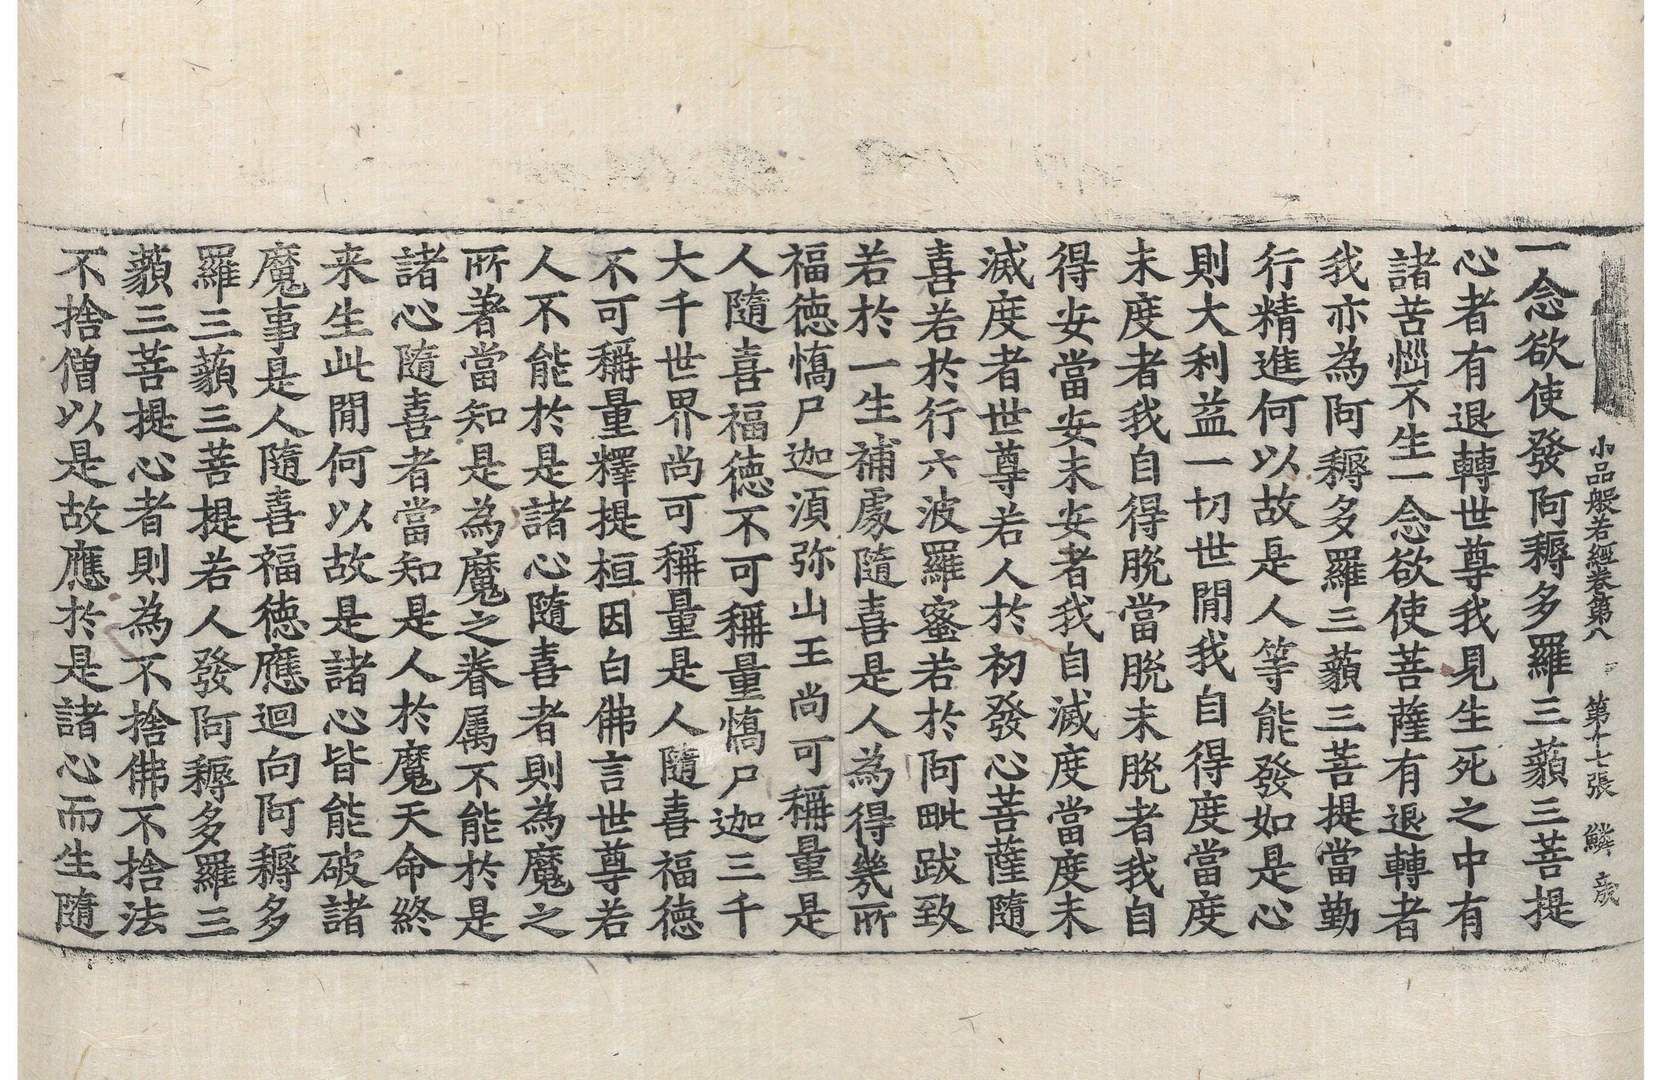 小品般若經卷第八　第十七張　鱗　歲
一念欲使發阿耨多羅三藐三菩提
心者有退轉世尊我見生死之中有
諸苦惱不生一念欲使菩薩有退轉者
我亦為阿耨多羅三藐三菩提當勤
行精進何以故是人等能發如是心
則大利益一切世閒我自得度當度
未度者我自得脫當脫未脫者我自
得安當安未安者我自滅度當度未
滅度者世尊若人於初發心菩薩隨
喜若於行六波羅蜜若於阿毗跋致
若於一生補處隨喜是人為得幾所
福德憍尸迦須弥山王尚可稱量是
人隨喜福德不可稱量憍尸迦三千
大千世界尚可稱量是人隨喜福德
不可稱量釋提桓因白佛言世尊若
人不能於是諸心隨喜者則為魔之
所著當知是為魔之眷属不能於是
諸心隨喜者當知是人於魔天命終
来生此閒何以故是諸心皆能破諸
魔事是人隨喜福德應迴向阿耨多
羅三藐三菩提若人發阿耨多羅三
藐三菩提心者則為不捨佛不捨法
不捨僧以是故應於是諸心而生隨